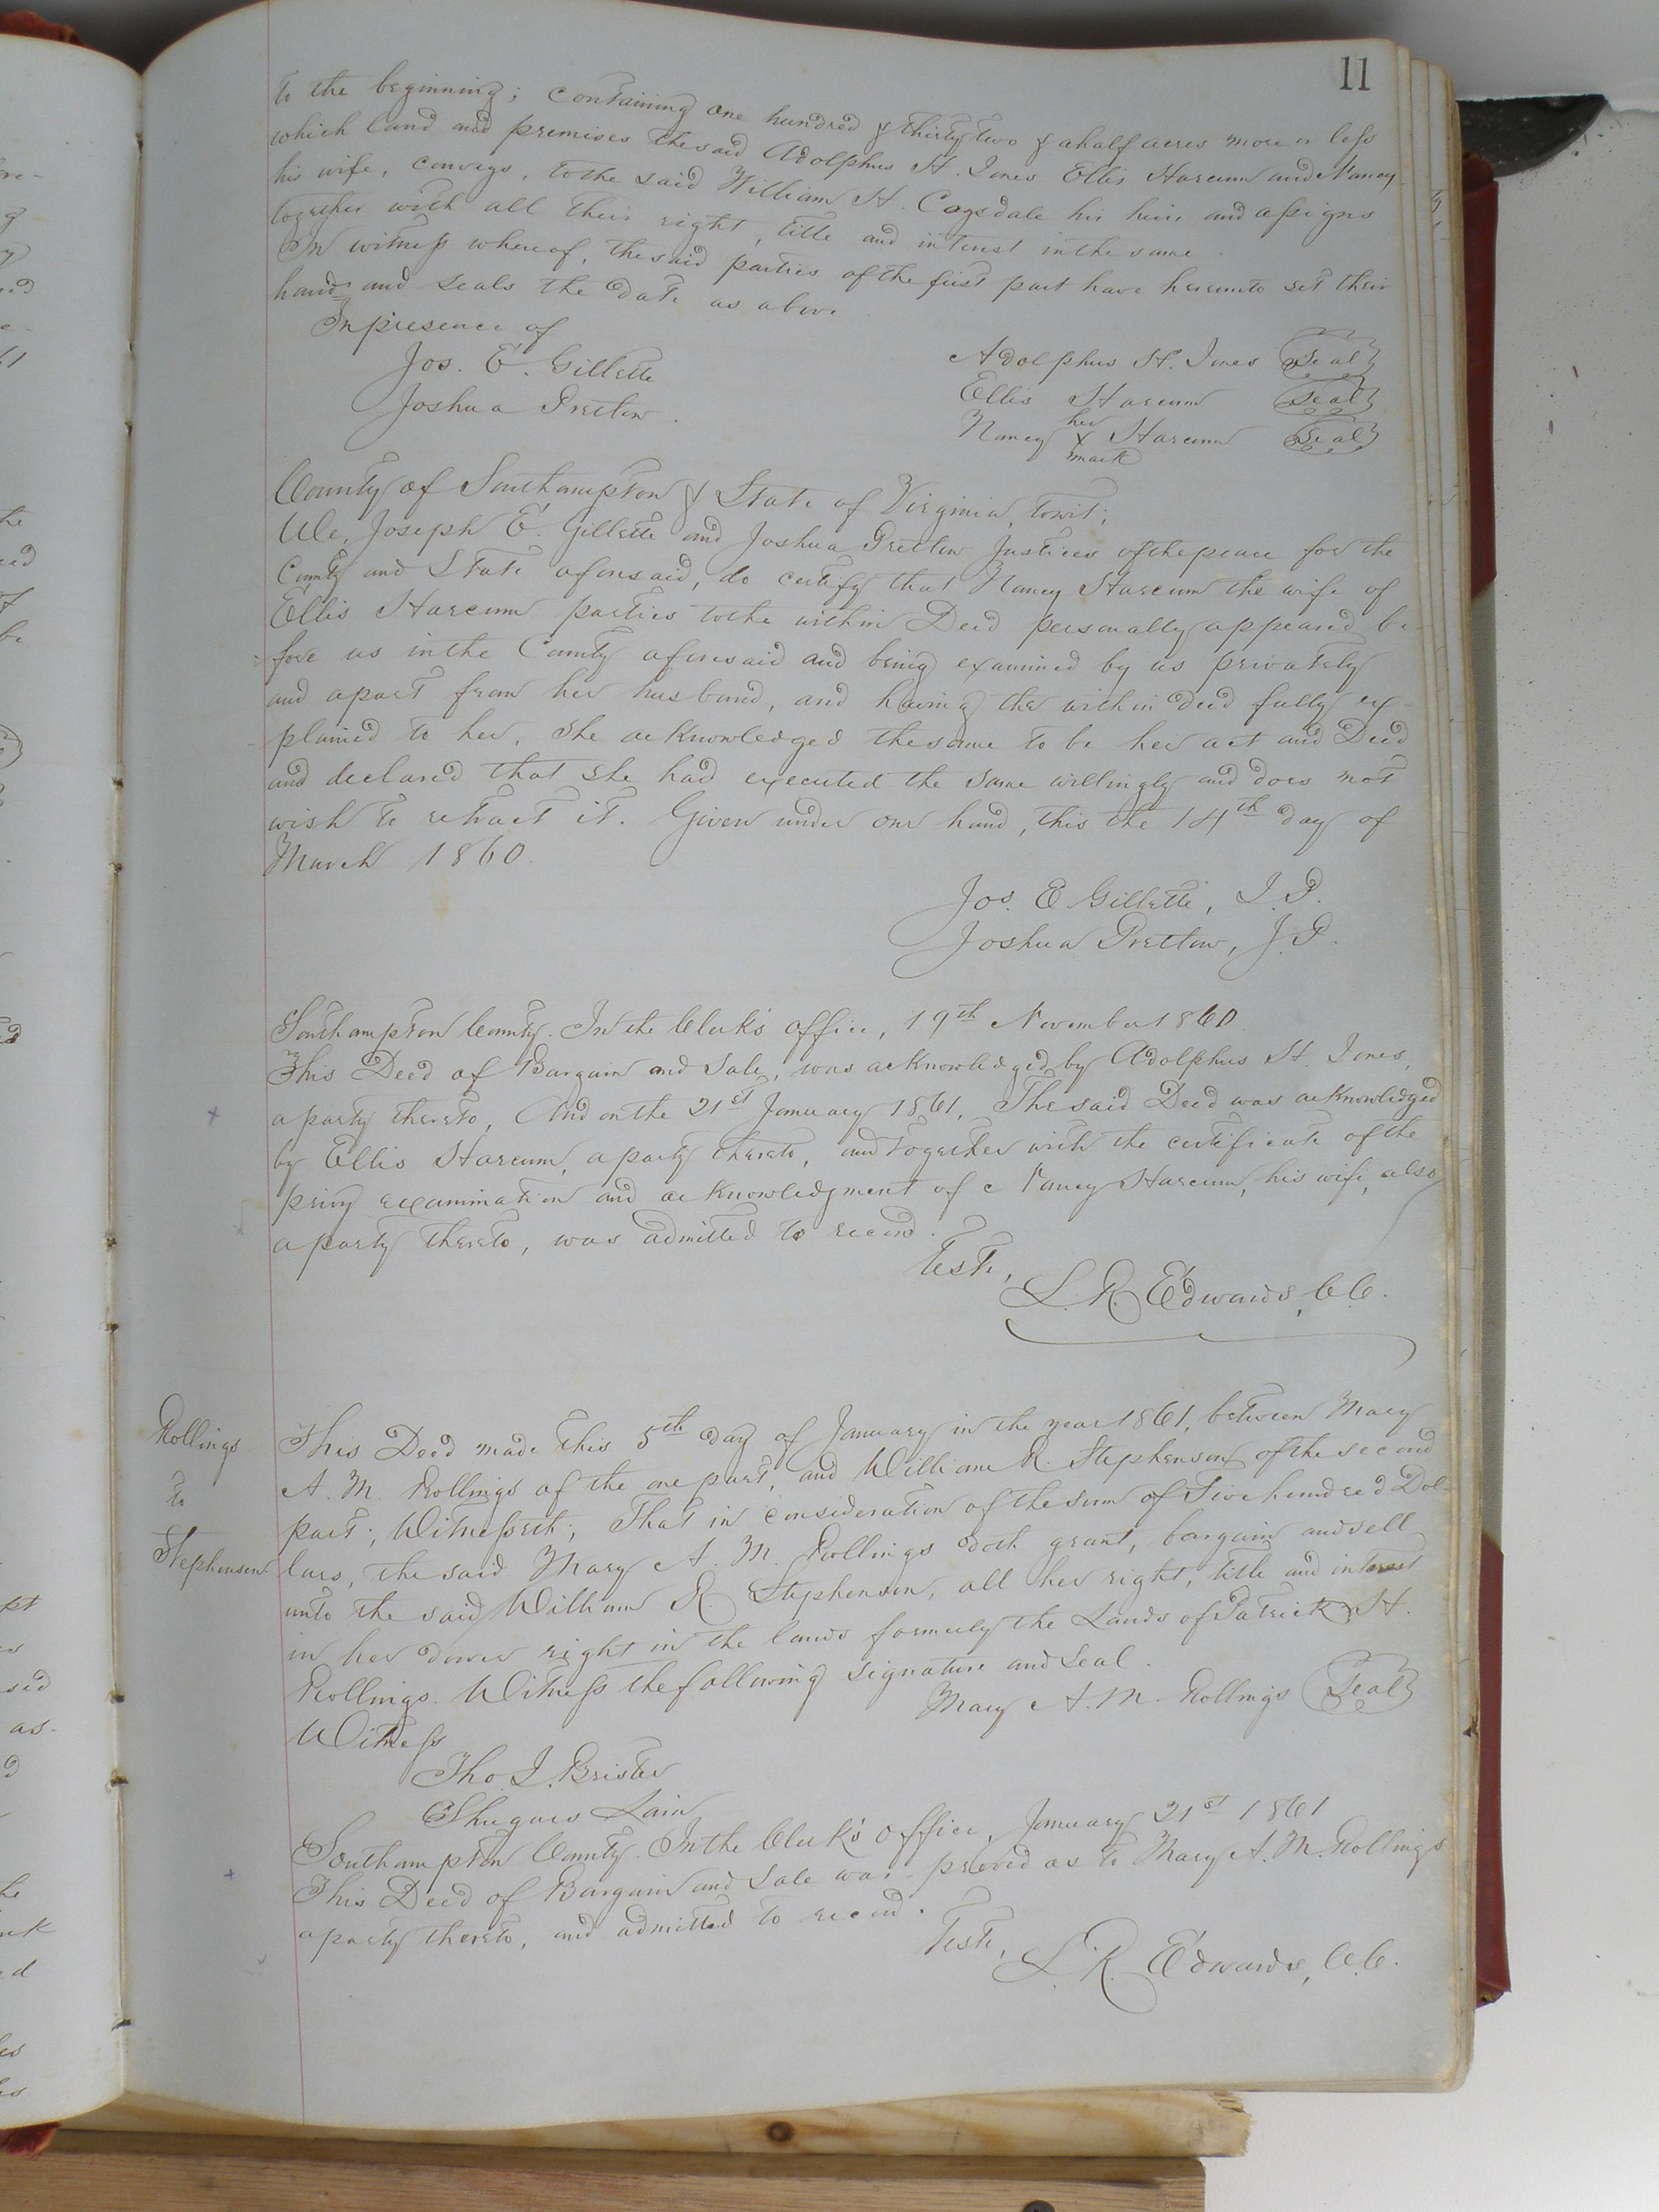 11
to the beginning; containing one hundred & thirty two & a half acres more or less
which land and premises the said Adolphus H. Jones Ellis Harcum and Nancy
his wife, conveys, to the said William H. Cogsdale his heirs and assigns
together with all their right, title and interest in the same.
In witness whereof, the said parties of the first part have hereunto set their
hands and seals the date as above
In presence of
Jos. E. Gillette
Joshua Pretlow.
Adolphus H. Jones Seal
Ellis Harcum Seal
Nancy her x mark Harcum Seal
County of Southampton & State of Virginia, towit;
We, Joseph E. Gillette and Joshua Pretlow Justices of the peace for the
County and State aforesaid, do certify that Nancy Harcum the wife of
Ellis Harcum parties to the within Deed personally appeared be-
fore us in the County aforesaid and being examined by us privately
and apart from her husband, and having the within deed fully ex-
plained to her, she acknowledged the same to be her act and Deed
and declared that she had executed the same willingly and does not
wish to retract it. Given under our hand, this the 14th day of
March 1860.
Jos. E Gillette, J.P.
Joshua Pretlow, J.P.
Southampton County. In the Clerk's office, 19th November 1860
This Deed of Bargain and Sale, was acknowledged by Adolphus H. Jones,
a party thereto, And on the 21st January 1861, The said Deed was acknowledged
by Ellis Harcum, a party thereto, and together with the certificate of the
privy examination and acknowledgment of Nancy Harcum, his wife, also
a party thereto, was admitted to record.
Teste,
L. R. Edwards, C.C.
Rollings
to
Stephenson
This Deed made this 5th day of January in the year 1861, between Mary
A. M. Rollings of the one part, and William R. Stephenson of the second
part; Witnesseth; That in consideration of the sum of Five hundred Dol-
lars, the said Mary A. M. Rollings doth grant, bargain and sell
unto the said William R Stephenson, all her right, title and interest
in her dower right in the lands formerly the Lands of Patrick H.
Rollings. Witness the following signature and seal.
Mary A. M. Rollings Seal
Witness
Tho. J. Brister
Shugars Lain
Southampton County. In the Clerk's office, January 21st 1861
This Deed of Bargain and Sale was proved as to Mary A. M. Rollings
a party thereto, and admitted to record.
Teste,
L. R. Edwards, C.C.